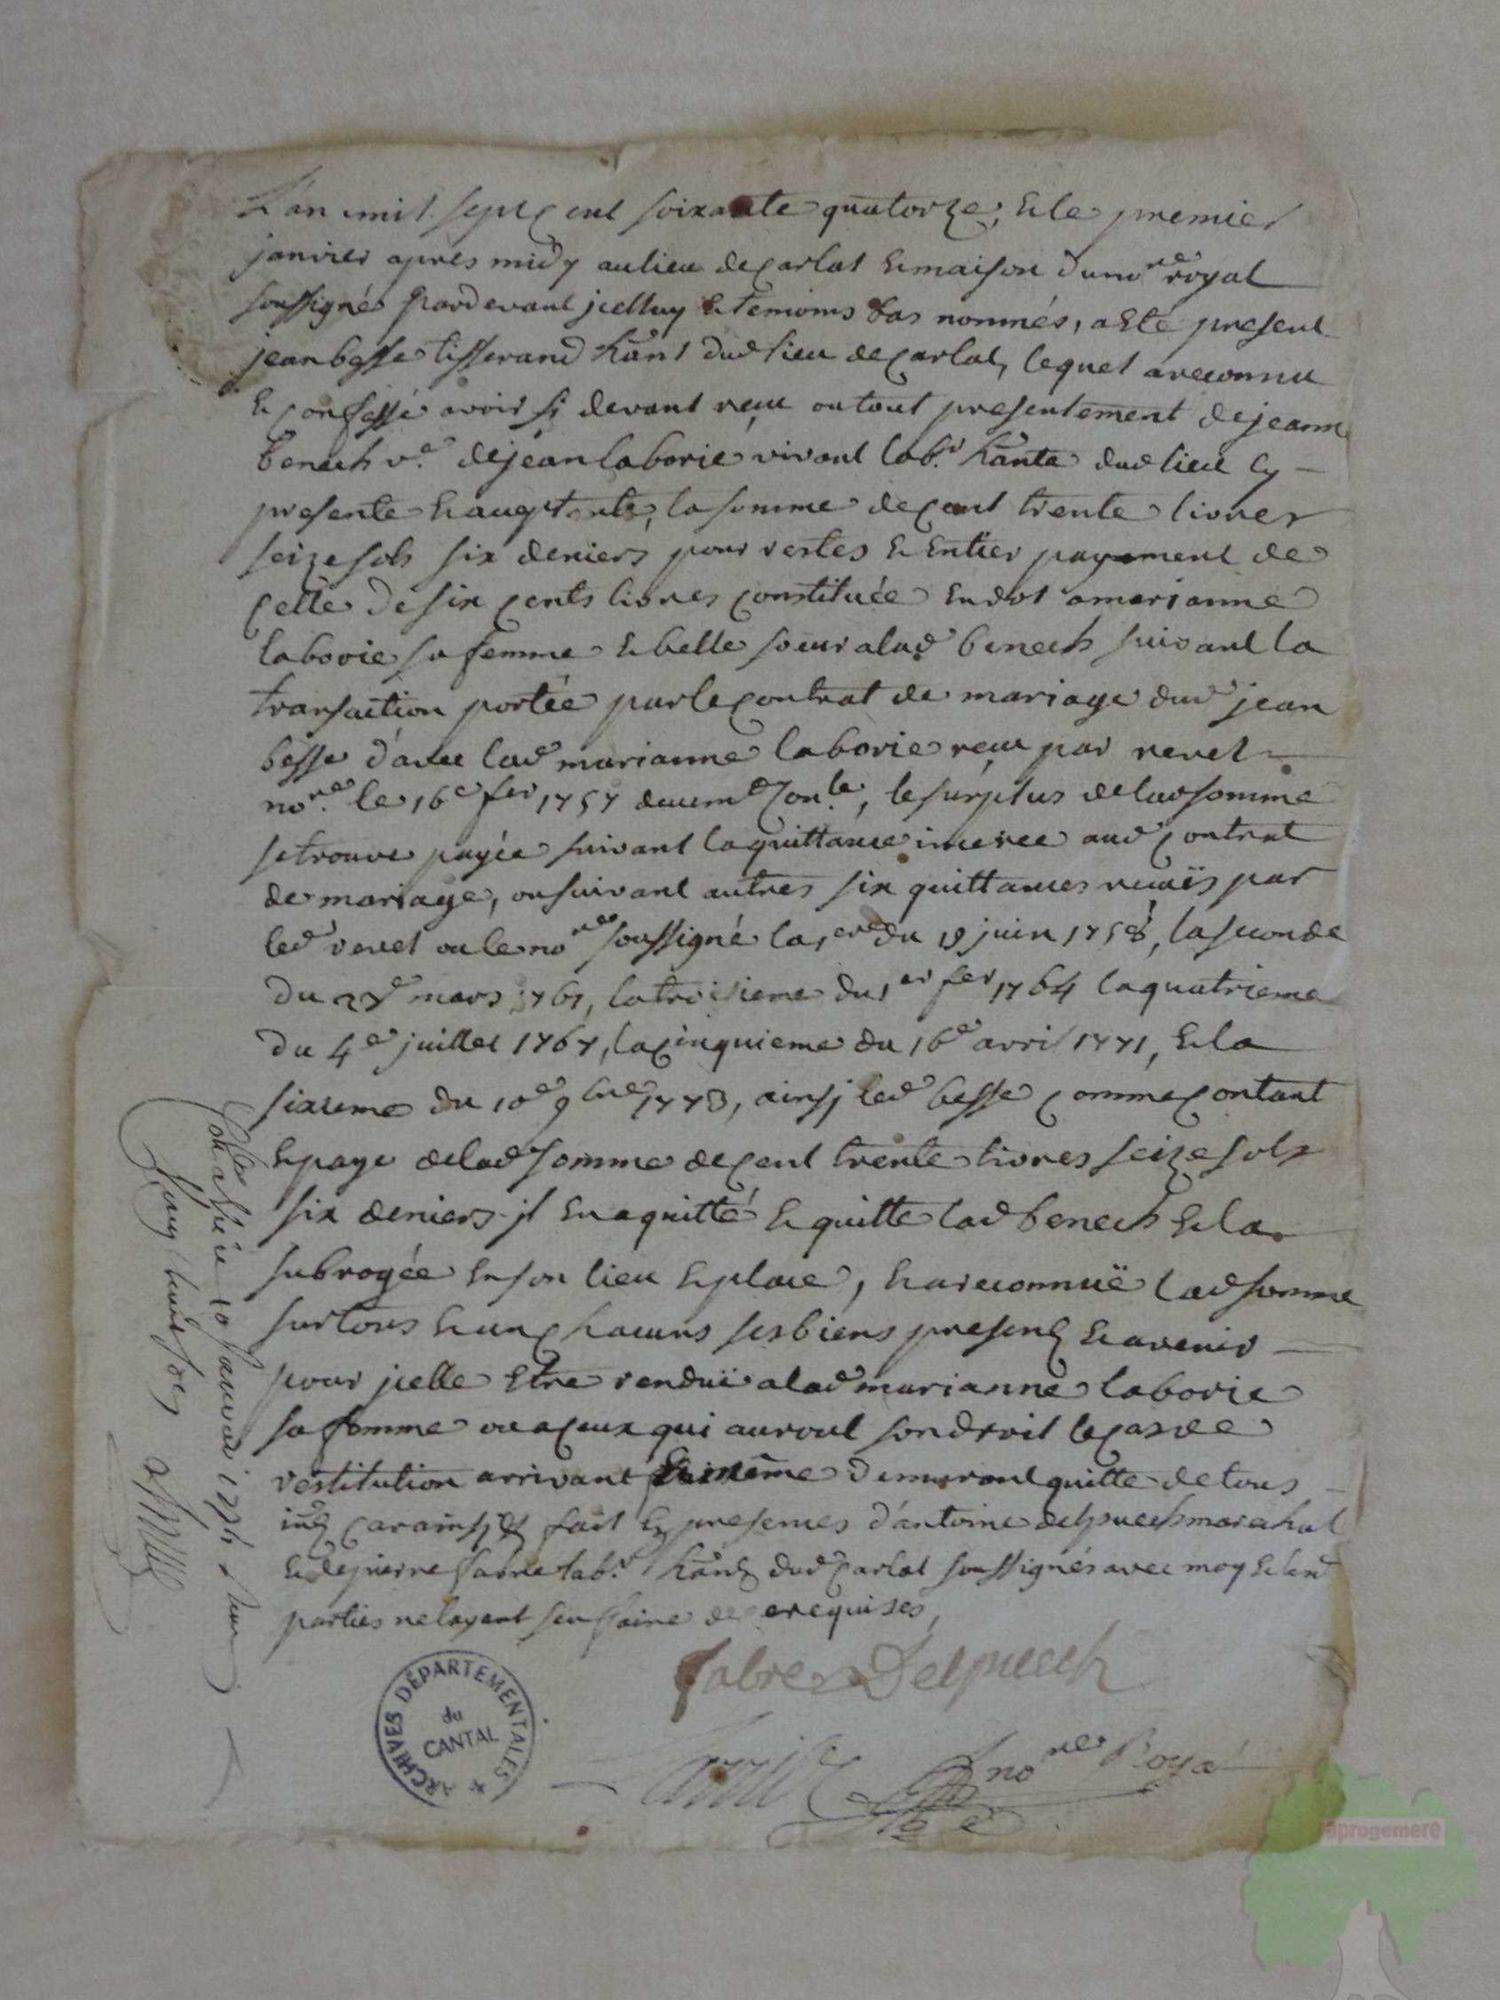 L'an mil sept cent soixante quatorze, & le premier
janvier apres midy au lieu de Carlat & maison du no.re royal
soussigné pardevant jcelluy & temoins bas nommés, a eté present
jean besse tisserand hant dud lieu de Carlat, lequel a reconnu
& confessé avoir sy devant reçu ou tout presentement de jeanne
benech v.e de jéan laborie vivant lab.r hante dud lieu Cy
presente & augmtante, la somme de Cent trente livres
seize sols six deniers pour restes & Entier payement de
Celle de six Cents livres Constituée En dot a marianne
laborie sa femme & belle soeur a lad benech suivant la
transaction portée par le Contrat de mariage dud jean
besse d'avec lad marianne laborie reçu par revel
no.re le 16e fer 1757 deuem.t Con.lé, le surplus de lad somme
se trouve payée suivant la quittance inceree aud Contrat
de mariage, ou suivant autres six quittances reçuës par
led revel ou le no.re soussigné la 1ere du 19 juin 1758, la seconde
du 27e mars 1761, la troisieme du 1er fer 1764 la quatrieme
du 4e juillet 1767, la Cinquieme du 16e avril 1771, & la
sixieme du 10e 9bre 1773, ainsj led besse Comme Contant
& paye de lad somme de Cent trente livres seize sols
six deniers jl En a quitté & quitte lad benech & la
subrogée En son lieu & place, & a reconnuë lad somme
sur tous & un Chacuns ses biens presens & avenir
pour jcelle Etre renduë a lad marianne laborie
sa femme ou a Ceux qui auront son droit le Cas de
restitution arrivant demurant quitte de tous
Car ainsj fait Es presences d'antoine delpuech marechal
& de pierre fabre lab.r hans dud Carlat soussignés avec moy & lesd
parties ne layent sçu faire de ce requises,
fabre Delpuech
no.re Royal
Con.lé a Vic le 10 janvier 1774 Reçu
ARCHIVES DÉPARTEMENTALES
du
CANTAL
aprogemere